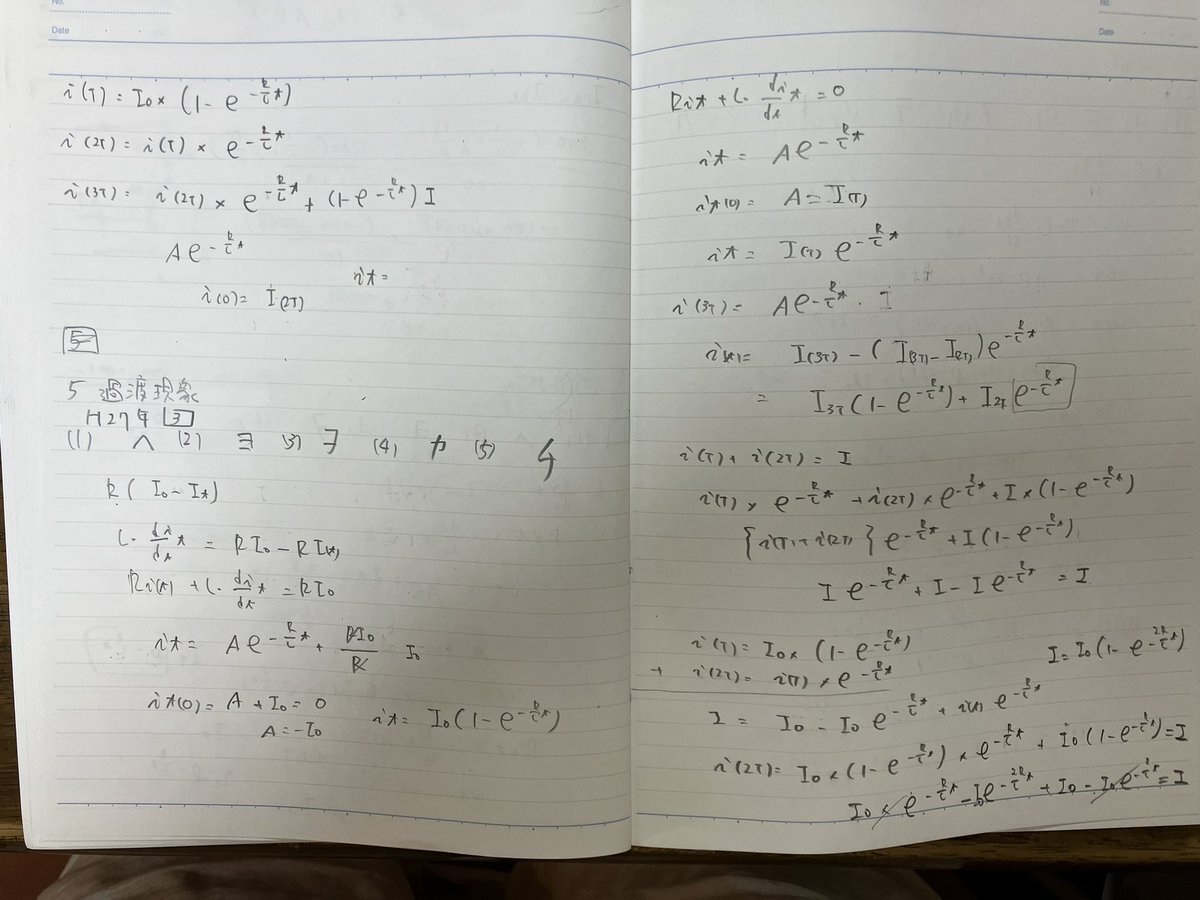 No.
Date
i(T) = I0 × (1 - e^{-\frac{R}{L}t})
i(2T) = i(T) × e^{-\frac{R}{L}t}
i(3T) = i(2T) × e^{-\frac{R}{L}t} + (1 - e^{-\frac{R}{L}t}) I
A e^{-\frac{R}{L}t}
it =
i(0) = I(2T)
5
5 過渡現象
H27年 3
(1) ヘ (2) ヨ (3) ヨ (4) カ (5) ケ
R( I0 - It)
L・\frac{di}{dt}t = RI0 - RI(t)
Ri(t) + L・\frac{di}{dt}t = RI0
it = A e^{-\frac{R}{L}t} + \frac{RI0}{R} I0
it(0) = A + I0 = 0
A = -I0
it = I0(1 - e^{-\frac{R}{L}t})
No.
Date
Rit + L・\frac{di}{dt}t = 0
it = A e^{-\frac{R}{L}t}
it(0) = A = I(T)
it = I(T) e^{-\frac{R}{L}t}
i(3T) = A e^{-\frac{R}{L}t}・I
i(t) = I(3T) - (I(3T) - I(2T)) e^{-\frac{R}{L}t}
= I3T(1 - e^{-\frac{R}{L}t}) + I2T e^{-\frac{R}{L}t}
i(T) + i(2T) = I
i(T) × e^{-\frac{R}{L}t} + i(2T) × e^{-\frac{R}{L}t} + I × (1 - e^{-\frac{R}{L}t})
{i(T) + i(2T)} e^{-\frac{R}{L}t} + I(1 - e^{-\frac{R}{L}t})
I e^{-\frac{R}{L}t} + I - I e^{-\frac{R}{L}t} = I
i(T) = I0 × (1 - e^{-\frac{R}{L}t})
I = I0(1 - e^{-\frac{2R}{L}t})
+ i(2T) = i(T) × e^{-\frac{R}{L}t}
I = I0 - I0 e^{-\frac{R}{L}t} + i(T) e^{-\frac{R}{L}t}
i(2T) = I0 × (1 - e^{-\frac{R}{L}t}) × e^{-\frac{R}{L}t} + I0(1 - e^{-\frac{R}{L}t}) = I
I0 × e^{-\frac{R}{L}t} - I0 e^{-\frac{2R}{L}t} + I0 - I0 e^{-\frac{R}{L}t} = I